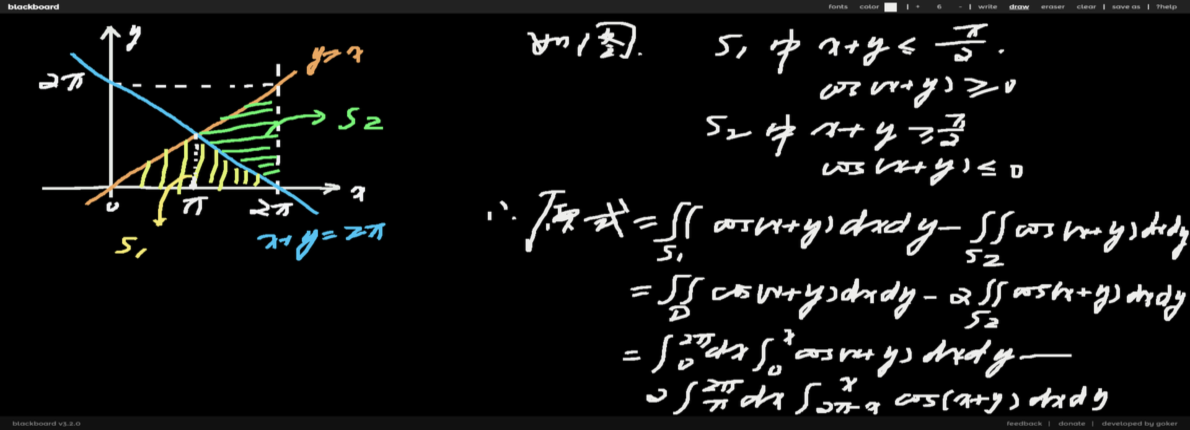 blackboard
fonts color | + 6 - | write draw eraser clear | save as | ?help
y
y=x
2π
S2
0 π 2π x
S1
x+y=2π
如图.
S1 中 x+y ≤ π/2.
cos(x+y) ≥ 0
S2 中 x+y ≥ π/2
cos(x+y) ≤ 0
∴ 原式 = ∬S1 cos(x+y)dxdy - ∬S2 cos(x+y)dxdy
= ∬D cos(x+y)dxdy - 2∬S2 cos(x+y)dxdy
= ∫0^2π dx ∫0^x cos(x+y) dxdy —
2∫π^2π dx ∫2π-x^x cos(x+y) dxdy
blackboard v3.2.0
feedback | donate | developed by goker